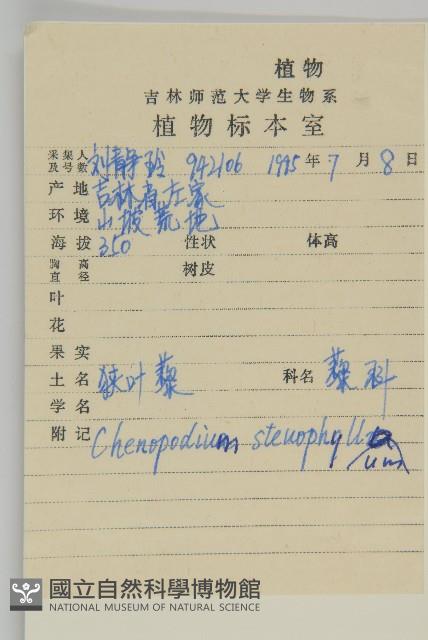 植物
吉林师范大学生物系
植物标本室
采集人及号数 刘静玲 942106 1995年7月8日
产地 吉林省左家
环境 山坡荒地
海拔 350 性状 体高
胸高直径 树皮
叶
花
果实
土名 狭叶藜 科名 藜科
学名
附记 Chenopodium stenophyllum
國立自然科學博物館
NATIONAL MUSEUM OF NATURAL SCIENCE